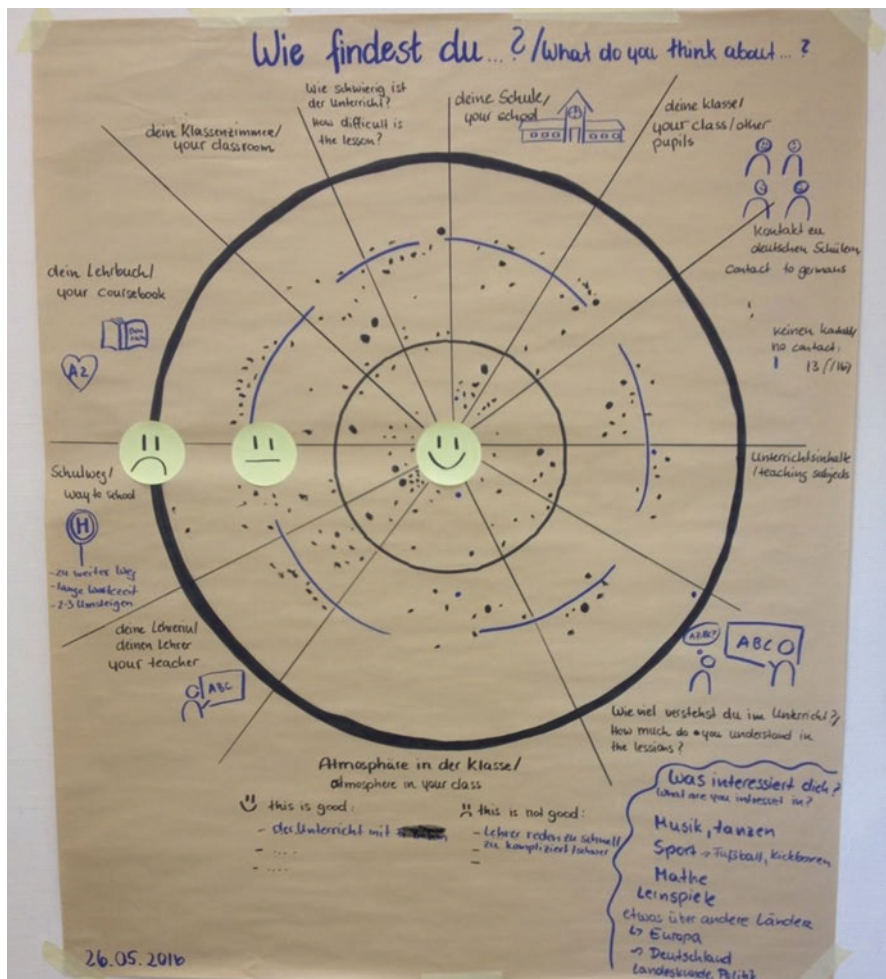 Wie findest du...?/What do you think about...?
Wie schwierig ist
der Unterricht?
How difficult is
the lesson?
deine Schule/
your school
deine Klasse/
your class/other
pupils
dein Klassenzimmer/
your classroom
Kontakt zu
deutschen Schülern
contact to germans
keinen Kontakt/
no contact:
13 (/16)
dein Lehrbuch/
your coursebook
A2
Unterrichtsinhalte
/teaching subjects
Schulweg/
way to school
H
- zu weiter Weg
- lange Wartezeit
- 2-3 Umsteigen
deine Lehrerin/
deinen Lehrer
your teacher
ABC
ABC
Wie viel verstehst du im Unterricht?/
How much do you understand in
the lessions?
Atmosphäre in der Klasse/
atmosphere in your class
this is good:
- der Unterricht mit
- ....
- ....
this is not good:
- Lehrer reden zu schnell
zu kompliziert/schwer
-
Was interessiert dich?
What are you intresset in?
Musik, tanzen
Sport → Fußball, Kickboxen
Mathe
Lernspiele
etwas über andere Länder
↳ Europa
→ Deutschland
Landeskunde, Politik
26.05.2016